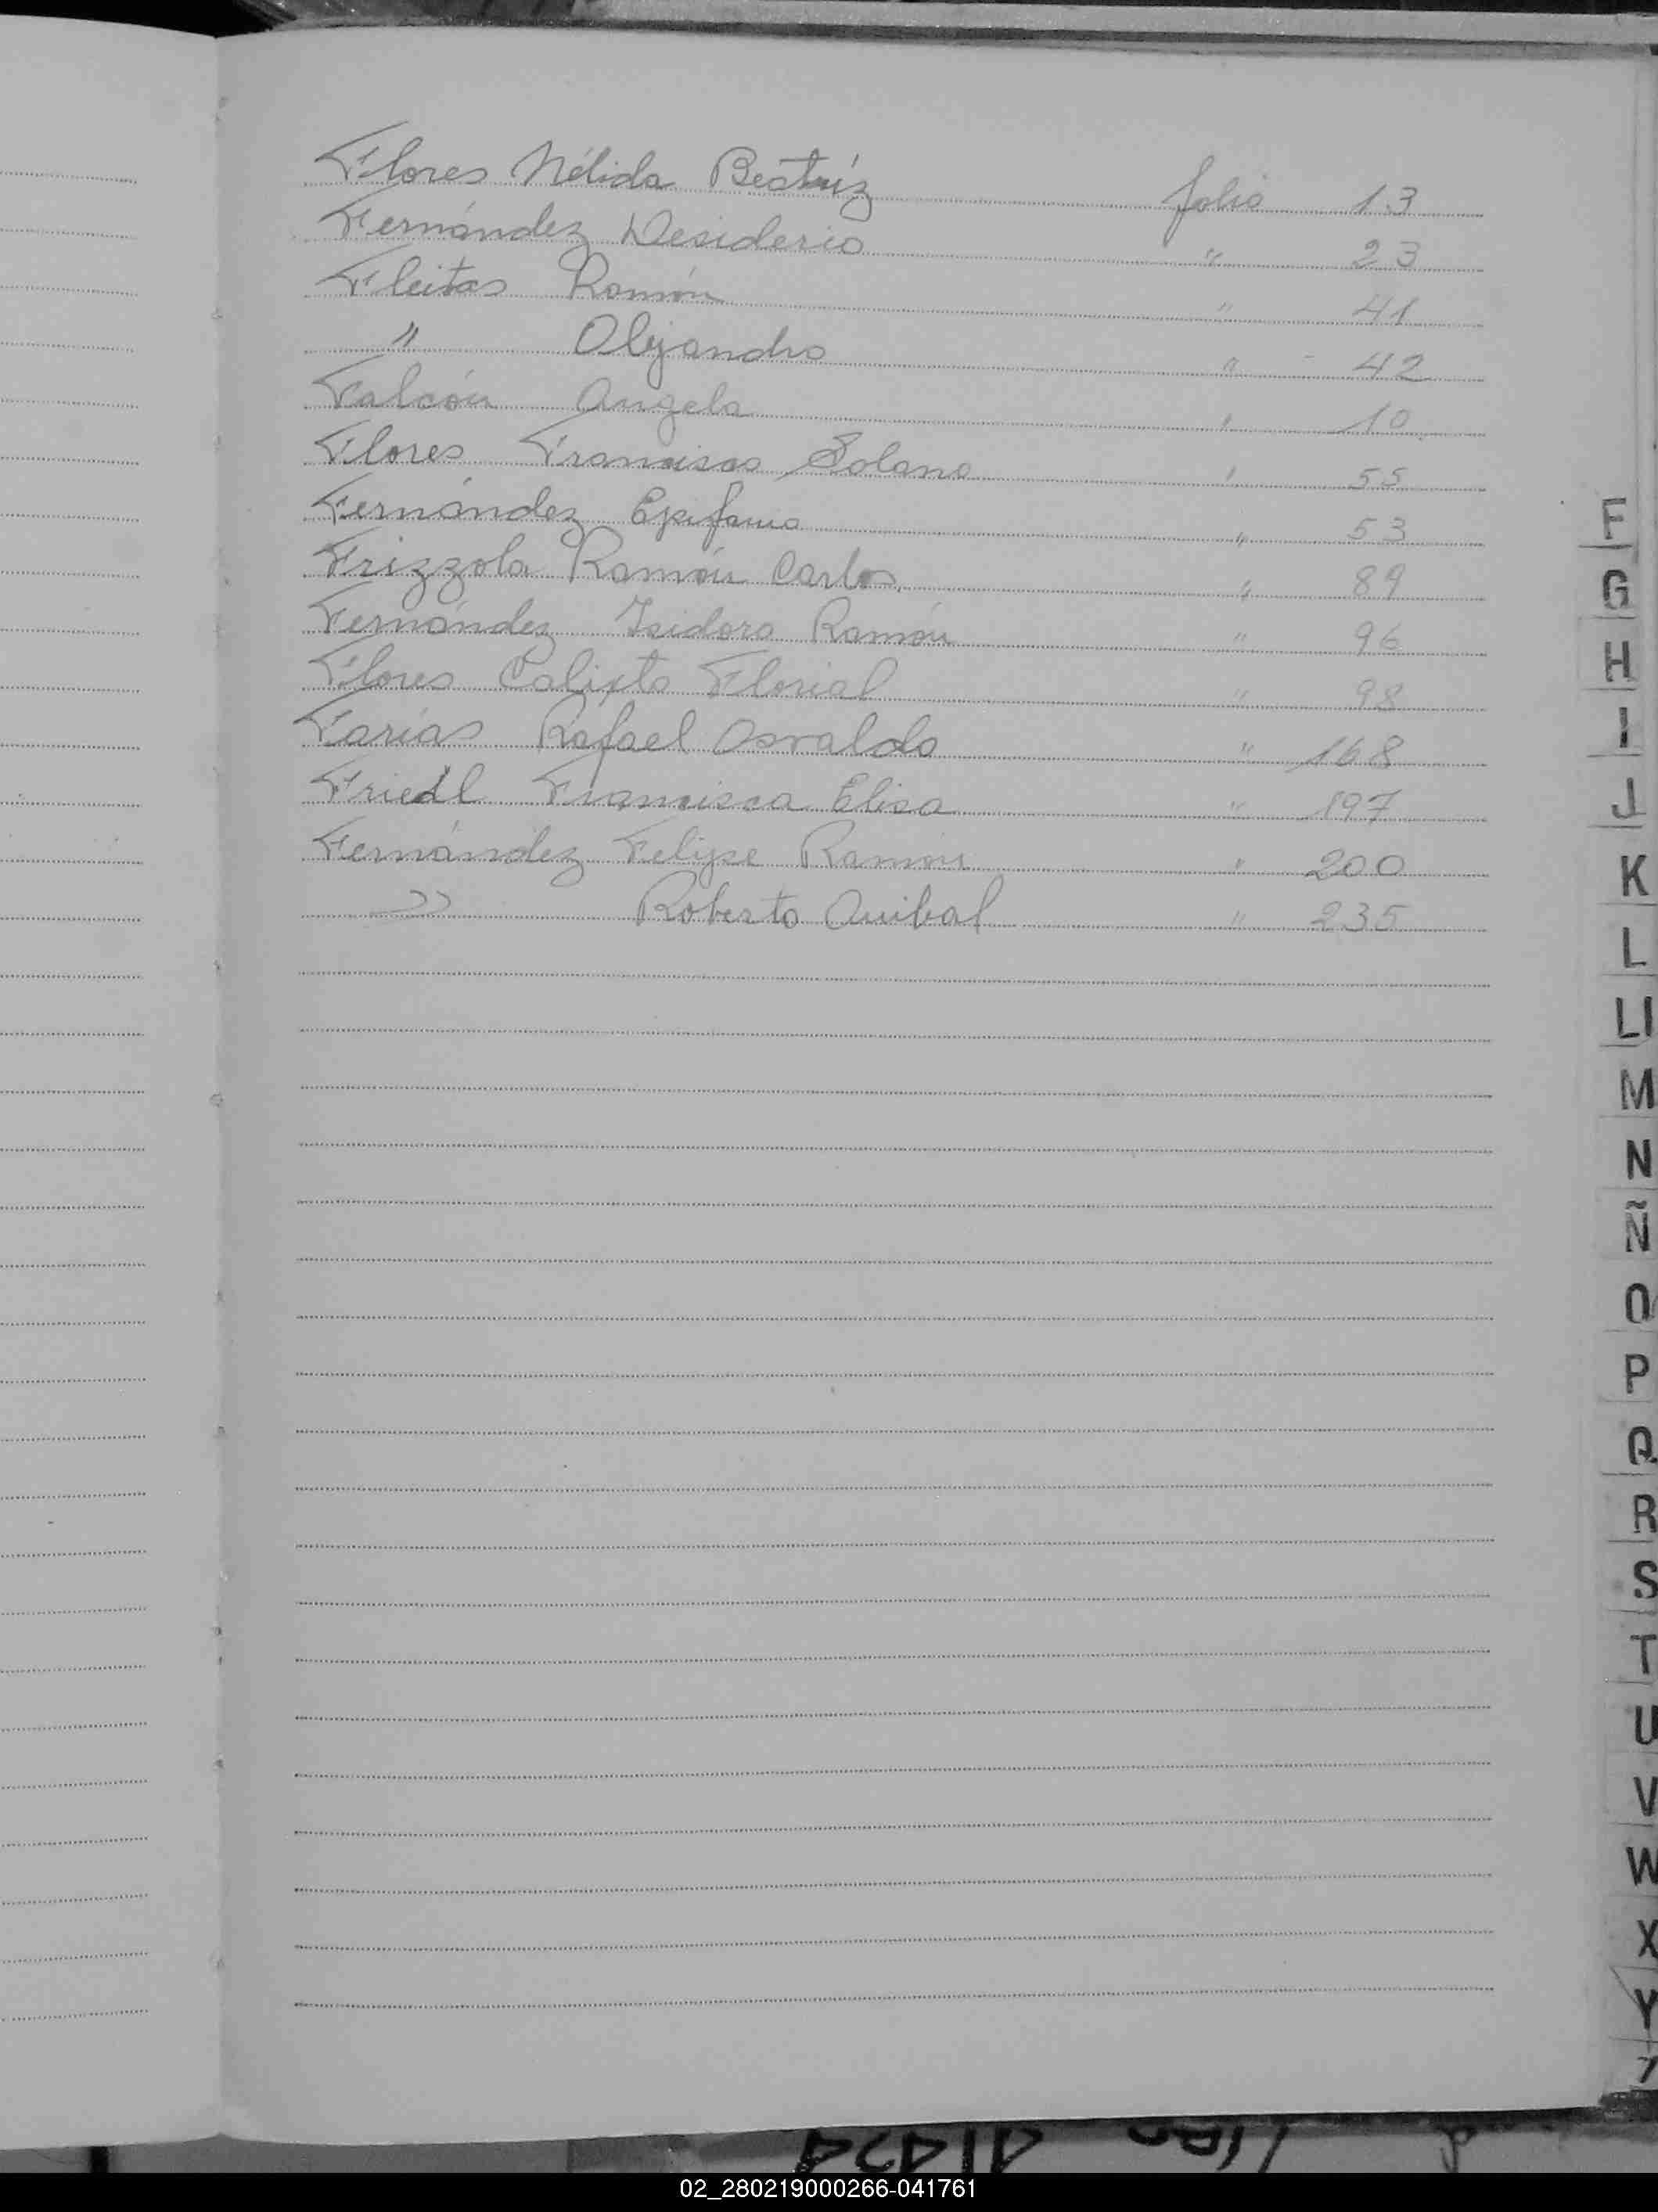 Flores Nélida Beatríz folio 13
Fernández Desiderio " 23
Fleitas Ramón " 41
" Alejandro " 42
Falcón Angela " 10
Flores Francisco Solano " 55
Fernández Epifanio " 53
Frizzola Ramón Carlos " 89
Fernández Isidoro Ramón " 96
Flores Calixto Florial " 98
Farías Rafael Osvaldo " 168
Friedl Francisca Elisa " 197
Fernández Felipe Ramón " 200
" Roberto Anibal " 235
F
G
H
I
J
K
L
Ll
M
N
Ñ
O
P
Q
R
S
T
U
V
W
X
Y
Z
02_280219000266-041761